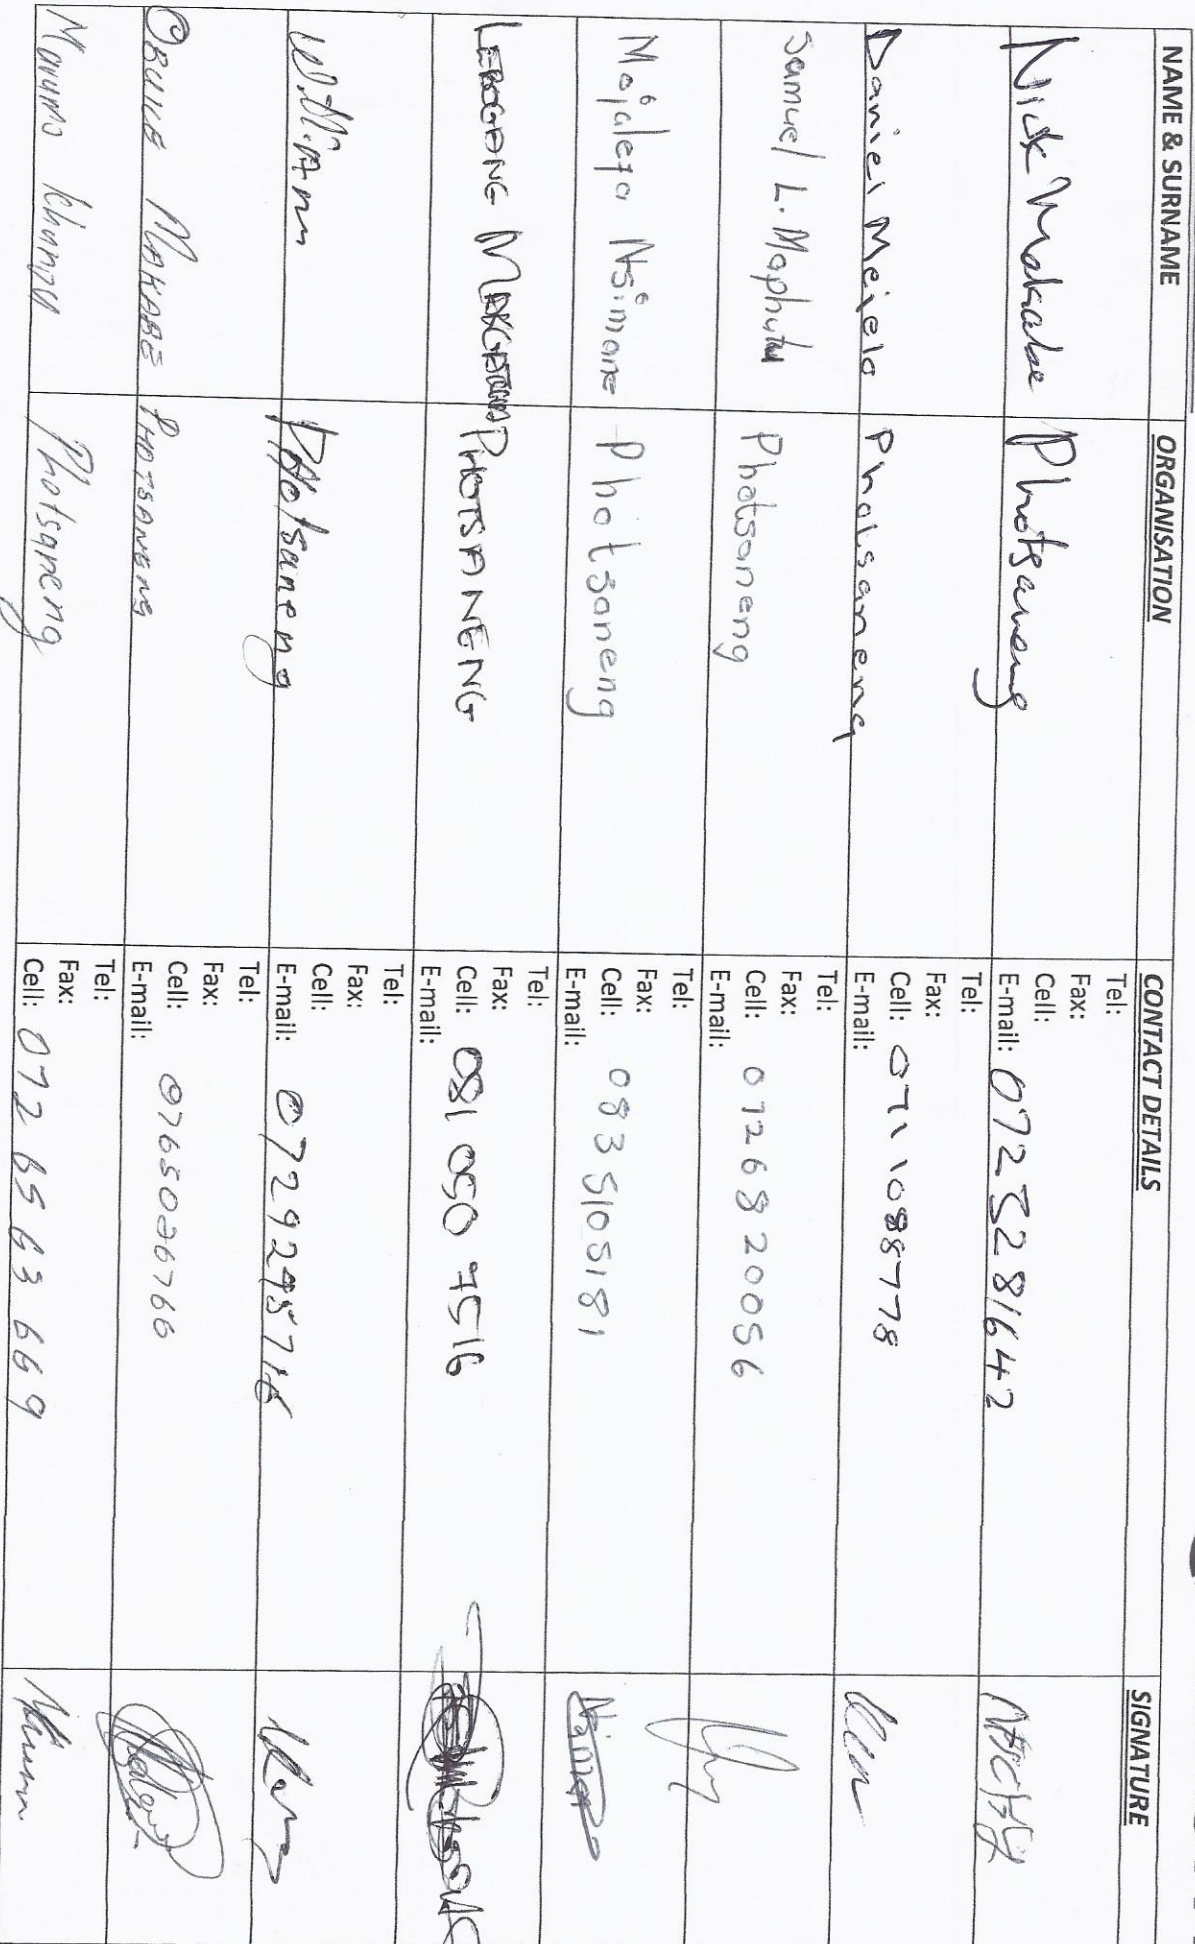 NAME & SURNAME ORGANISATION CONTACT DETAILS SIGNATURE
Nick Makabe Photsaneng Tel:
Fax:
Cell:
E-mail: 0723281642
Daniel Mejelo Photsaneng Tel:
Fax:
Cell: 0711088778
E-mail:
Samuel L. Maphutu Photsaneng Tel:
Fax:
Cell: 0726820056
E-mail:
Mojalefa Nsimane Photsaneng Tel:
Fax:
Cell: 0835105181
E-mail:
LEBOGONG PHOTSANENG Tel:
Fax:
Cell: 081 050 7516
E-mail:
Photsaneng Tel:
Fax:
Cell:
E-mail:
MAKABE PHOTSANENG Tel:
Fax:
Cell:
E-mail:
Khunou Photsaneng Tel:
Fax:
Cell: 072 65 63 669